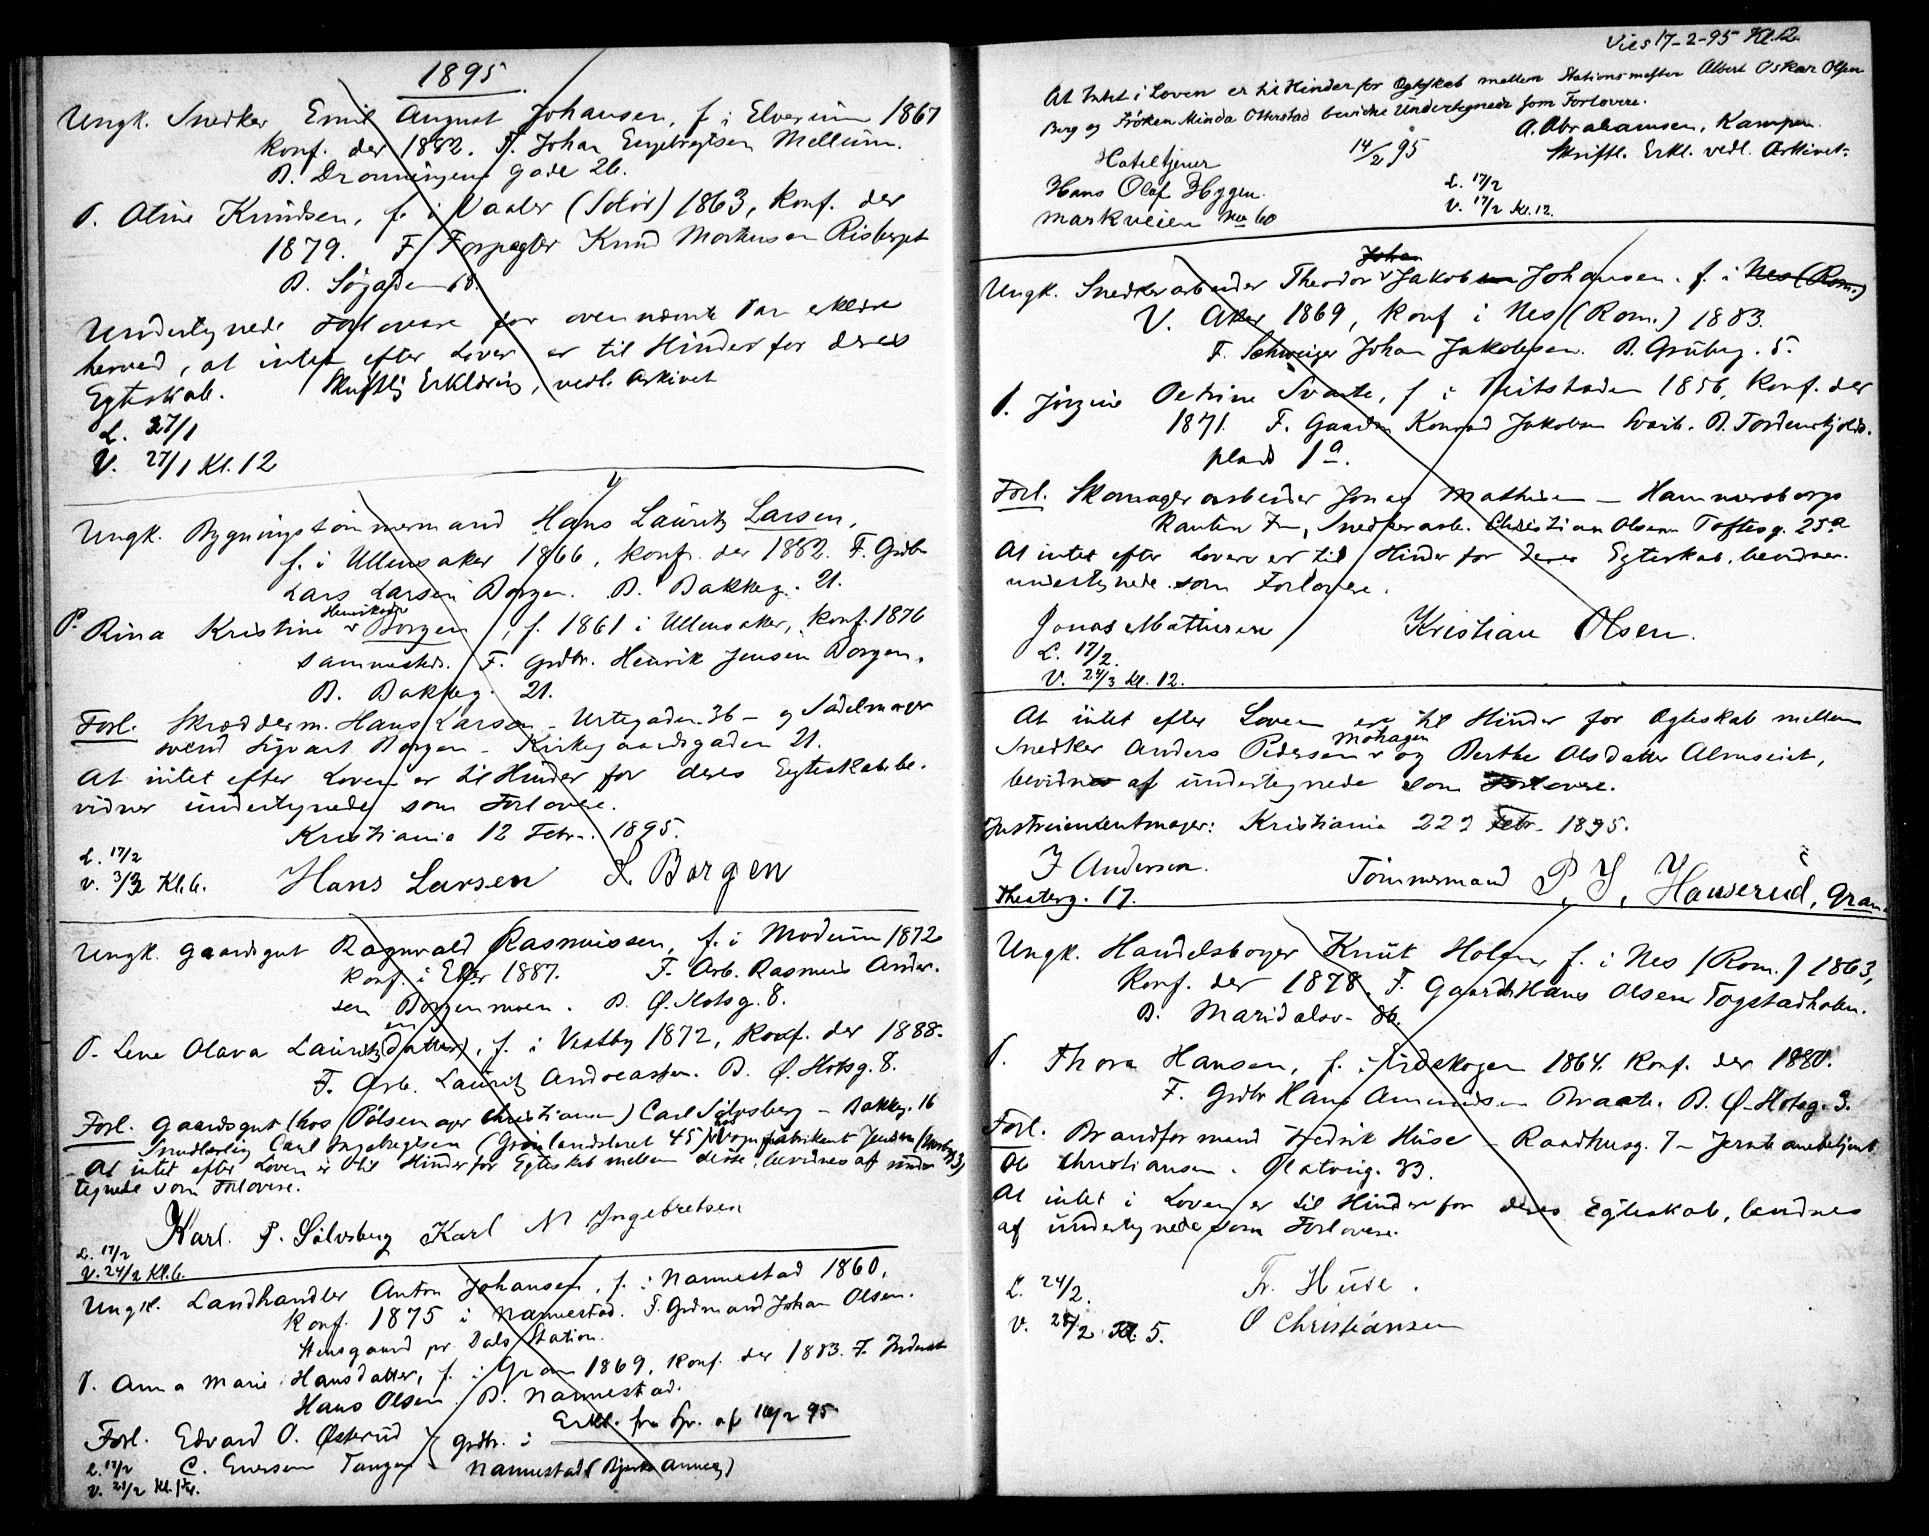 1895.
Ungk. Snedker Emil August Johansen, f. i Elverum 1867
konf. der 1882. F. Johan Engebregtsen Mellum.
B. Dronningens gade 26.
P. Oline Knudsen, f. i Vaaler (Solør) 1863, konf. der
1879. F. Forpagter Knud Mortensen Risberget
B. Søgaden 18.
Undertegnede Forlovere for ovennævnte Par erklære
herved, at intet efter Loven er til Hinder for deres
Egteskab. Skriftlig Erklæring, vedl. Arkivet
L. 27/1
V. 27/1 Kl. 12
Ungk. Bygningstømmermand Hans Lauritz Larsen,
f. i Ullensaker 1866, konf. der 1882. F. Grdbr.
Lars Larsen Borgen. B. Bakkeg. 21.
P. Rina Kristine Henriksdtr v Borgen, f. 1861 i Ullensaker, konf. 1876
sammesteds. F. Grdbr. Henrik Jensen Borgen.
B. Bakkeg. 21.
Forl. Skræddderm. Hans Larsen - Urtegaden 36 - og Sadelmager
svend Sigvart Borgen - Kirkegaardsgaden 21.
At intet efter Loven er til Hinder for deres Egteskab be-
vidner undertegnede som Forlovere.
Kristiania 12 Febr. 1895.
L. 17/2
V. 3/3 Kl. 6. Hans Larsen S. Borgen
Ungk. Gaardsgut Ragnvald Rasmussen, f. i Modum 1872
konf. i Eker 1887. F. Arb. Rasmus Ander-
sen Borgenmoen. B. Ø. Slotsg. 8.
P. Lene Olava Lauritzen (datter), f. i Vestby 1872, konf. der 1888.
F. Arb. Lauritz Andreassen. B. Ø. Slotsg. 8.
Forl. Gaardsgut (hos Pølsemager Christiansen) Carl Sølvsberg - Bakkeg. 16
Smedlærling Carl Ingebregtsen (Grønlandsleret 45) hos Vognfabrikant Jensen
At intet efter Loven er til Hinder for Egteskab mellem disse, bevidnes af under-
tegnede som Forlovere.
Karl. P. Sølvsberg Karl M Ingebretsen
L. 17/2
V. 24/2 Kl. 6.
Ungk. Landhandler Anton Johansen, f. i Nannestad 1860,
konf. 1875 i Nannestad. F. Grdmand Johan Olsen.
Stensgaard pr. Dals Station.
P. Anna Marie Hansdatter, f. i Gran 1869, konf. der 1883. F. Inderst
Hans Olsen. B. Nannestad.
Erkl. fra Spr. af 16/2 95
Forl. Edvard O. Østerud } Grdbr. i
L. 17/2 C. Eversen Tangen - Nannestad (Bjerke Annex)
V. 21/2
Vies 17-2-95 Kl. 12.
At Intet i Loven er til Hinder for Egteskab mellem Stationsmester Albert Oskar Olsen
Berg og Frøken Minda Otterstad bevidne Undertegnede som Forlovere.
14/2 95 A. Abrahamsen, Kampen.
Hoteltjener Skriftl. Erkl. vedl. Arkivet.
Hans Olaf Hygen. L. 17/2
Markveien No 60 V. 17/2 Kl. 12.
Ungk. Snedkerarbeider Theodor Johan v Jakobsen Johansen. f. i Nes (Rom.)
V. Aker 1869, konf i Nes (Rom.) 1883.
F. Schweizer Johan Jakobsen. B. Grubeg. 5.
P. Jørgine Petrine Svarte, f. i Beitstaden 1856, konf. der
1871. F. Gaardm. Konrad Jakobsen Svarte. B. Tordenskjolds
plads 1 a.
Forl. Skomagerarbeider Jonas Mathisen - Hammersborgs
kanten 7, Snedkerarb. Christian Olsen Toftesg. 25a
At intet efter Loven er til Hinder for deres Egteskab, bevidner
undertegnede som Forlovere.
Jonas Mathisen Kristian Olsen.
L. 17/2.
V. 24/3 Kl. 12.
At intet efter Loven er til Hinder for Egteskab mellem
Snedker Anders Pedersen Mohagen v og Berthe Olsdatter Almseiet,
bevidnes af undertegnede som Forlovere.
Instrumentmager: Kristiania 22 2 Febr. 1895.
J Andersen. Tømmermand P. J. Hauserud, Gran
Theaterg. 17.
Ungk. Handelsborger Knut Holm f. i Nes (Rom.) 1863,
konf. der 1878. F. Gaardbr Hans Olsen Togstadholen.
B. Maridalsv. 36.
P. Thora Hansen, f. i Urskogen 1864. konf. der 1880.
F. Grdbr Hans Amundsen Braate. B. Ø. Slotsg. 3.
Forl. Brandformand Fredrik Huse - Raadhusg. 7 - Jernbanebetjent
Ole Christiansen. Platoug. 33.
At intet i Loven er til Hinder for deres Egteskab, bevidnes
af undertegnede som Forlovere.
L. 24/2. Fr. Huse.
V. 28/2 Kl. 5. O Christiansen